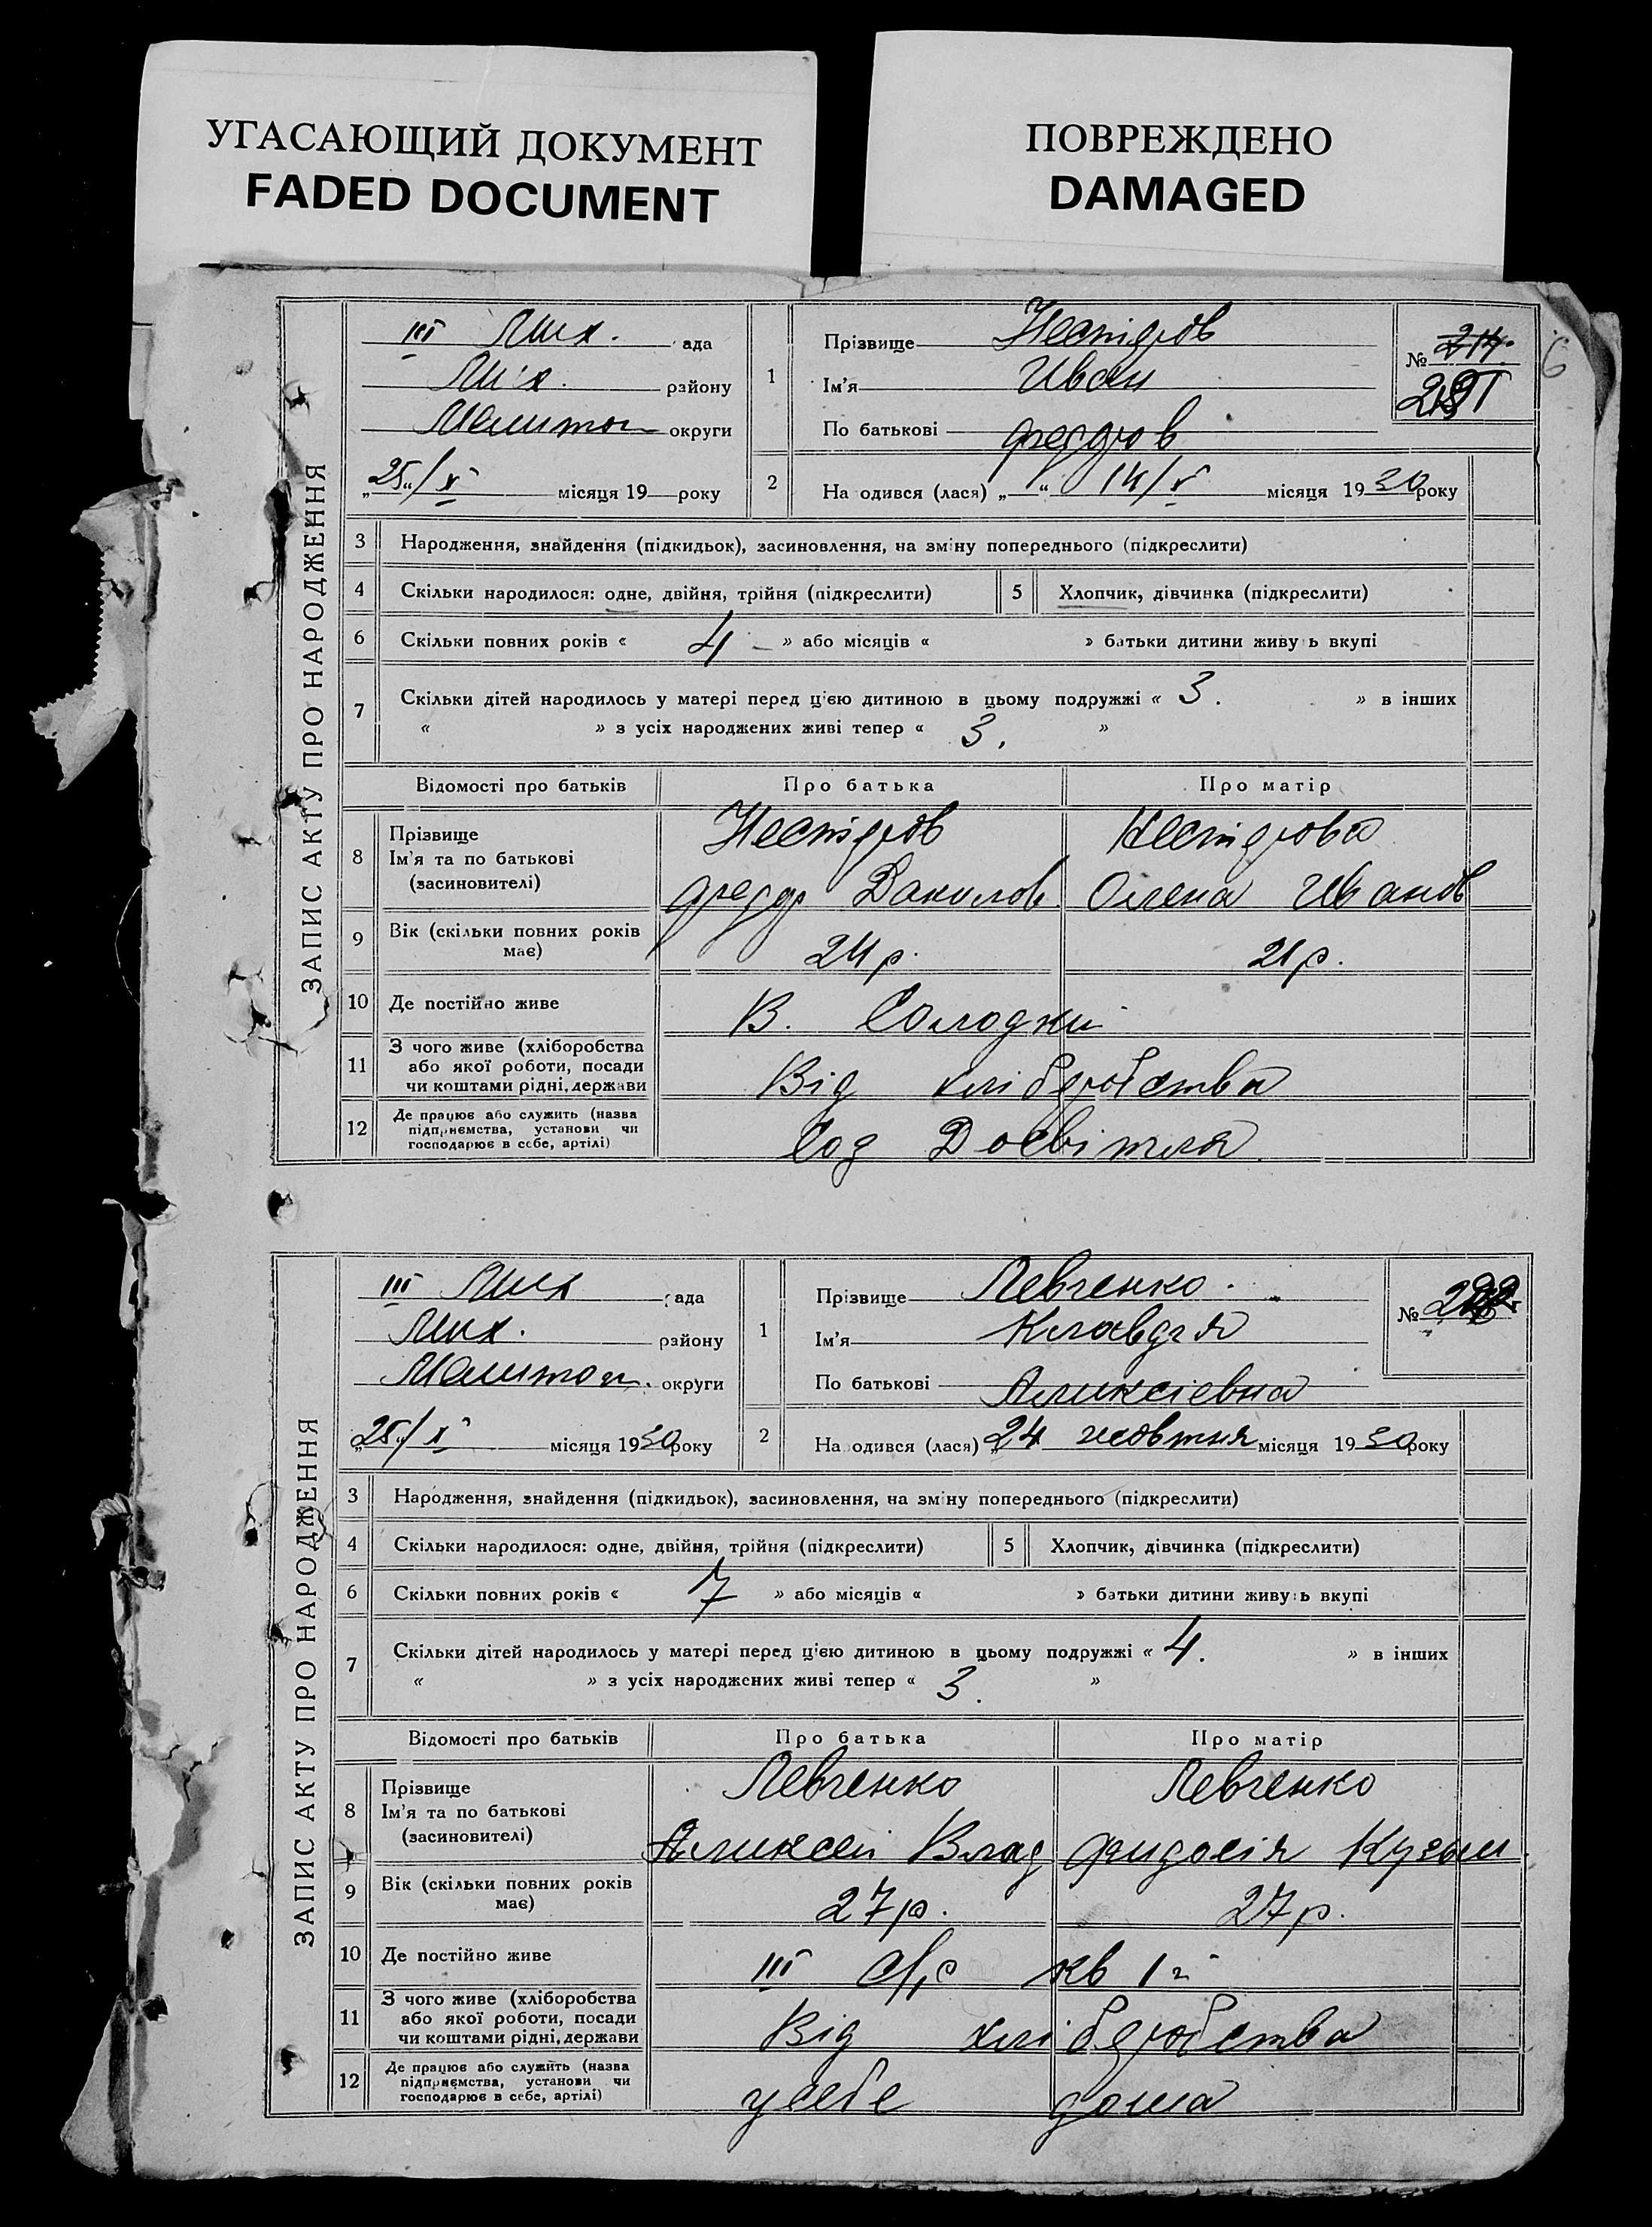 УГАСАЮЩИЙ ДОКУМЕНТ
FADED DOCUMENT
ПОВРЕЖДЕНО
DAMAGED
6
ЗАПИС АКТУ ПРО НАРОДЖЕННЯ
III Мих. рада
Мих. району
Мелитоп округи
„25“/X місяця 19 року
1
Прізвище Нестеров
Ім'я Иван
По батькові Федоров
№ 214.
2 На одився (лася) „ “ 14/X місяця 1930 року
3 Народження, знайдення (підкидьок), засиновлення, на зміну попереднього (підкреслити)
4 Скільки народилося: одне, двійня, трійня (підкреслити) 5 Хлопчик, дівчинка (підкреслити)
6 Скільки повних років « 4 » або місяців « » батьки дитини живуть вкупі
7 Скільки дітей народилось у матері перед цією дитиною в цьому подружжі « 3. » в інших
« » з усіх народжених живі тепер « 3. »
Відомості про батьків Про батька Про матір
8 Прізвище Ім'я та по батькові (засновителі)
Нестеров Нестерова
Федор Данилов Олена Иванов
9 Вік (скільки повних років має) 24 р. 21 р.
10 Де постійно живе В. Солодкий
11 З чого живе (хліборобства або якої роботи, посади чи коштами рідні, держави Від хліборобства
12 Де працює або служить (назва підприємства, установи чи господарює в себе, артілі) Соз Досвітля
ЗАПИС АКТУ ПРО НАРОДЖЕННЯ
III Мих рада
Мих. району
Мелитоп. округи
„25“/X місяця 1930 року
1
Прізвище Левченко.
Ім'я Клавдія
По батькові Аликсіевна
№
2 На одився (лася) „24 жовтня місяця 1930 року
3 Народження, знайдення (підкидьок), засиновлення, на зміну попереднього (підкреслити)
4 Скільки народилося: одне, двійня, трійня (підкреслити) 5 Хлопчик, дівчинка (підкреслити)
6 Скільки повних років « 7 » або місяців « » батьки дитини живуть вкупі
7 Скільки дітей народилось у матері перед цією дитиною в цьому подружжі « 4. » в інших
« » з усіх народжених живі тепер « 3. »
Відомості про батьків Про батька Про матір
8 Прізвище Ім'я та по батькові (засиновителі)
Левченко Левченко
Аликсей Влад Фидосія Кузьм.
9 Вік (скільки повних років має) 27 р. 27 р.
10 Де постійно живе III с/р кв 1
11 З чого живе (хліборобства або якої роботи, посади чи коштами рідні, держави Від хліборобства
12 Де працює або служить (назва підприємства, установи чи господарює в себе, артілі) у себе дома